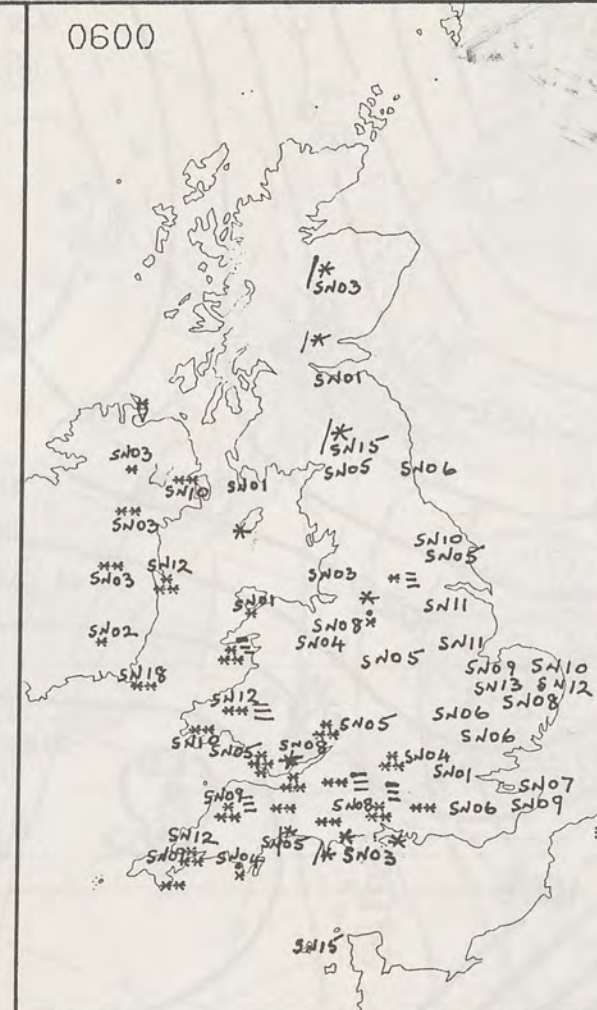 0600
SN03
SN01
SN15
SN05 SN06
SN03
SN10 SN01
SN03
SN10
SN05
SN03 SN12 SN03
SN01 SN11
SN08
SN02 SN04 SN11
SN05
SN09 SN10
SN18 SN13 SN12
SN12 SN08
SN06
SN10 SN05 SN06
SN05 SN08 SN04
SN01
SN07
SN09 SN08 SN06 SN09
SN12 SN05
SN04 SN03
SN15